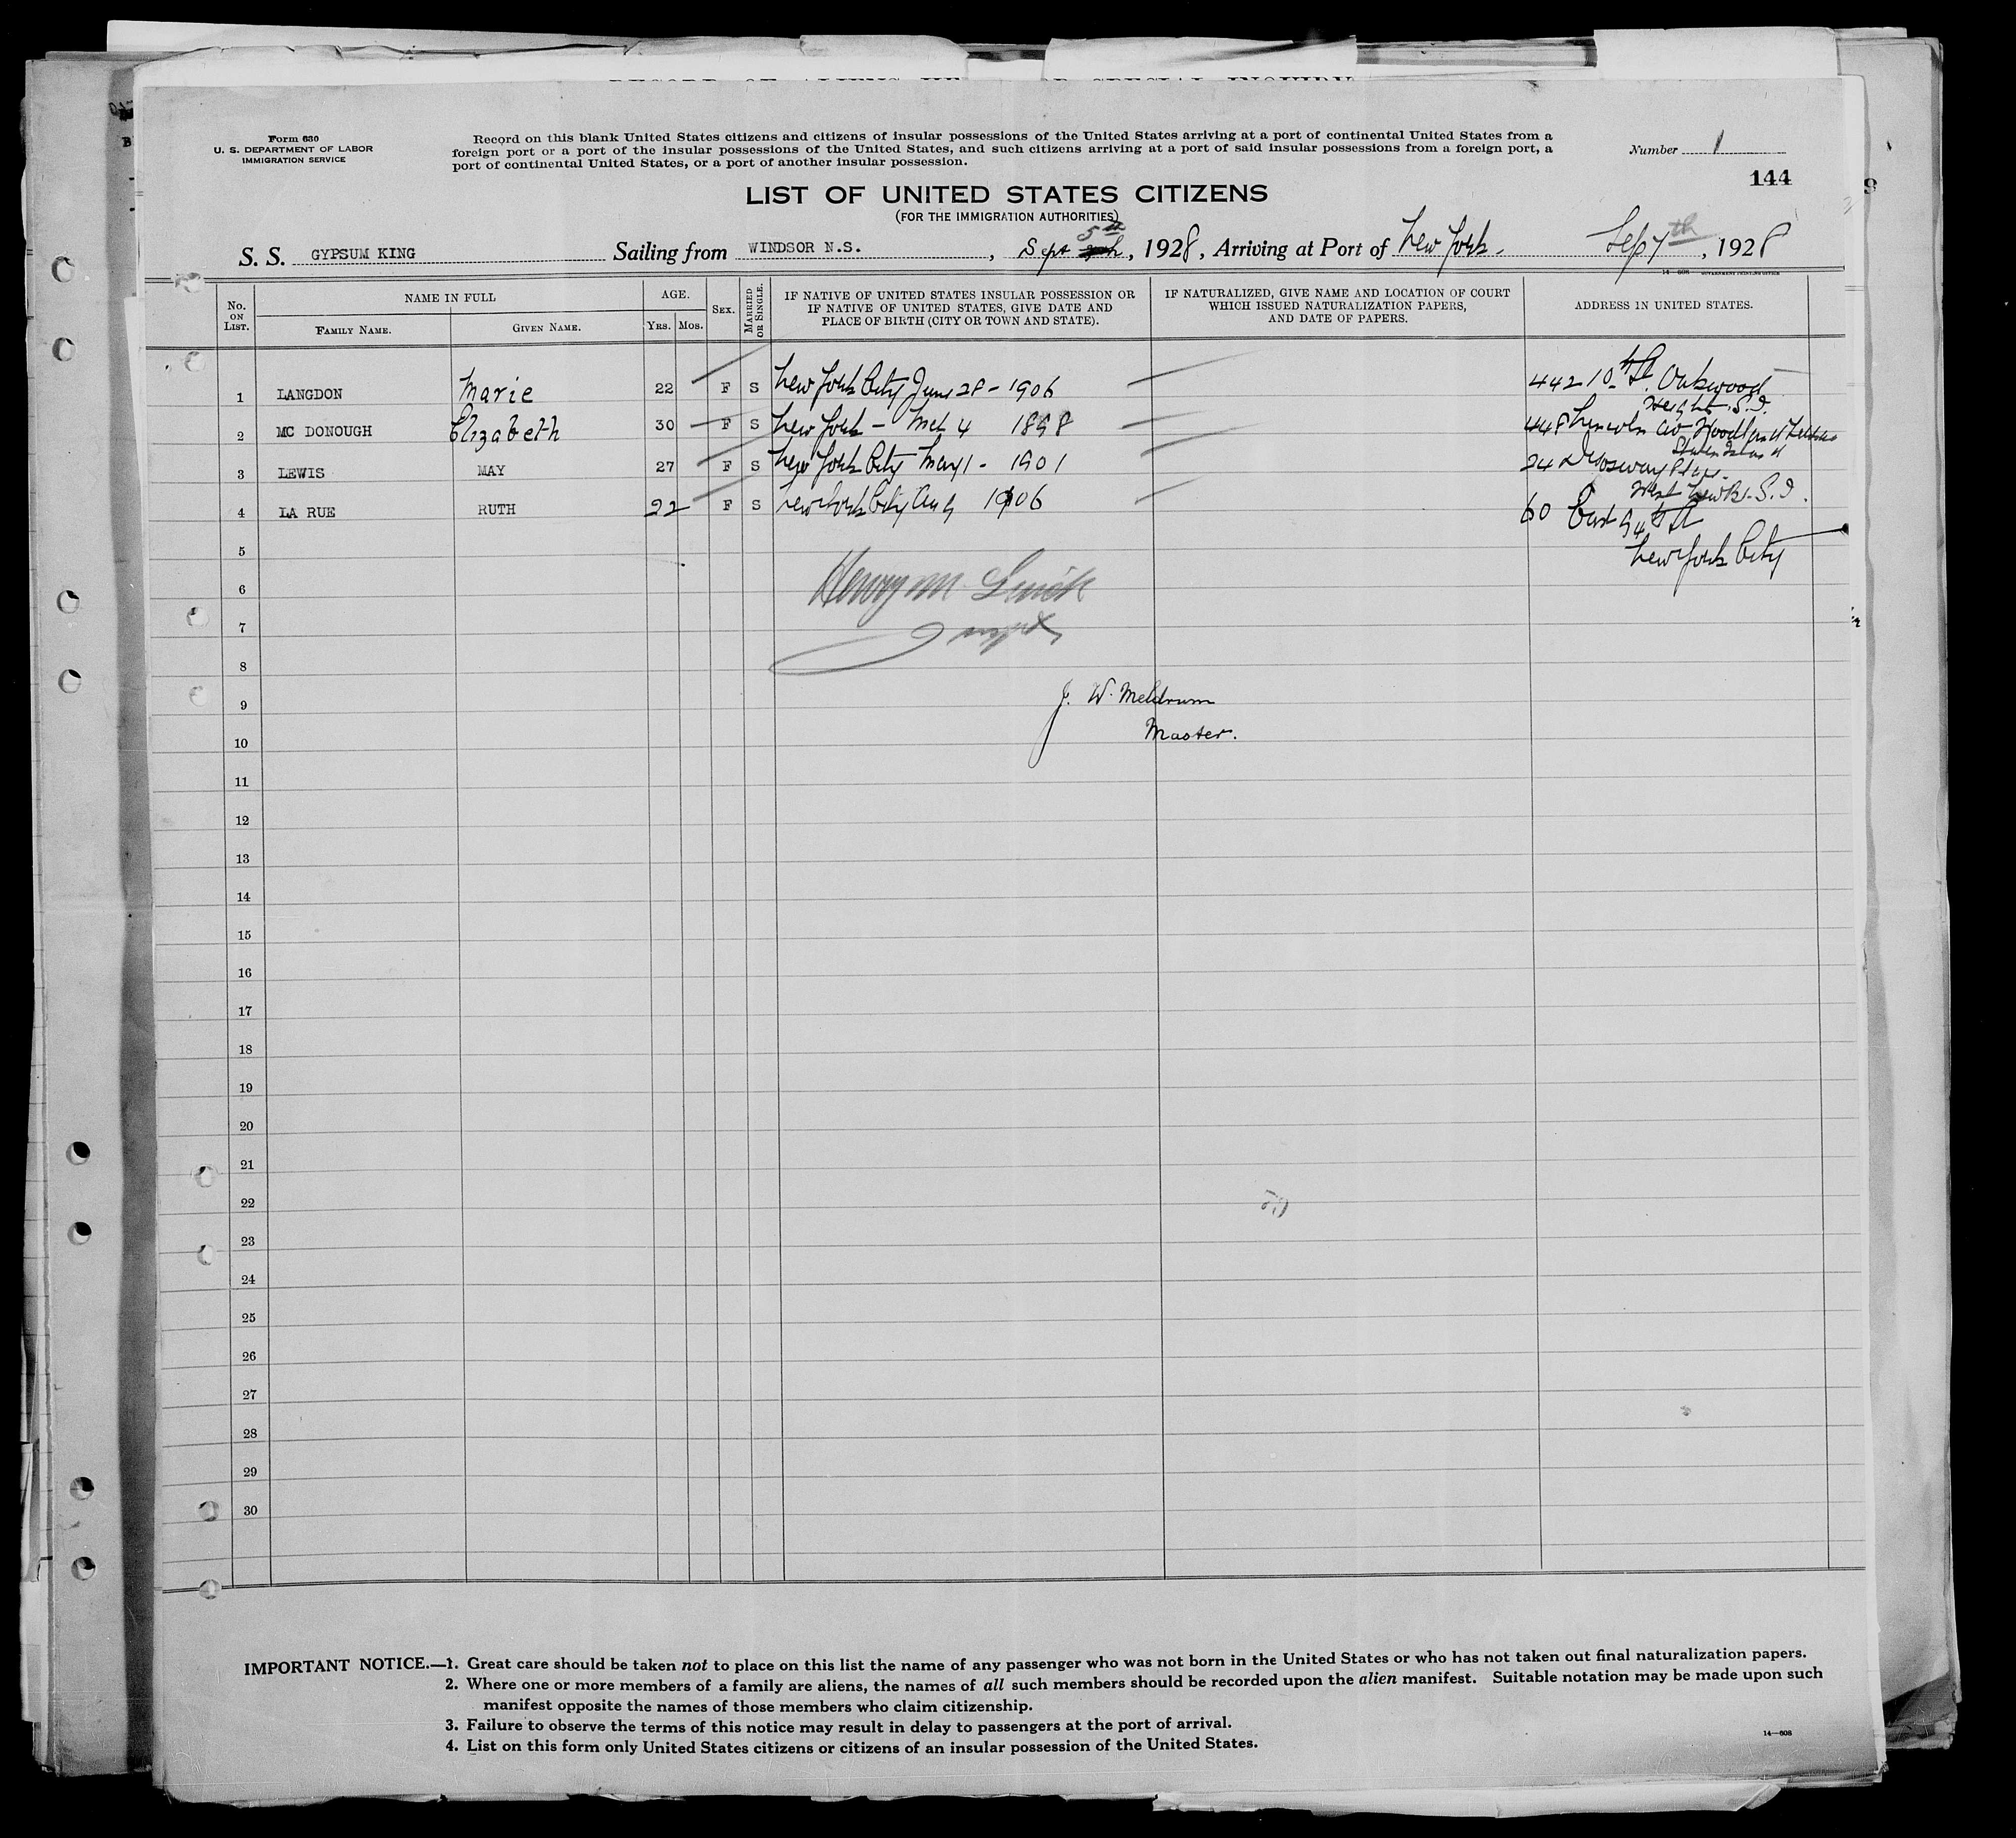 Form 630
U. S. DEPARTMENT OF LABOR
IMMIGRATION SERVICE
Record on this blank United States citizens and citizens of insular possessions of the United States arriving at a port of continental United States from a
foreign port or a port of the insular possessions of the United States, and such citizens arriving at a port of said insular possessions from a foreign port, a
port of continental United States, or a port of another insular possession.
Number 1
144
LIST OF UNITED STATES CITIZENS
(FOR THE IMMIGRATION AUTHORITIES)
S. S. GYPSUM KING Sailing from WINDSOR N.S. , Sept 5th , 1928 , Arriving at Port of New York. Sep 7th , 1928
No. ON LIST.
NAME IN FULL
FAMILY NAME.
GIVEN NAME.
AGE.
YRS. MOS.
SEX.
MARRIED OR SINGLE.
IF NATIVE OF UNITED STATES INSULAR POSSESSION OR
IF NATIVE OF UNITED STATES, GIVE DATE AND
PLACE OF BIRTH (CITY OR TOWN AND STATE).
IF NATURALIZED, GIVE NAME AND LOCATION OF COURT
WHICH ISSUED NATURALIZATION PAPERS,
AND DATE OF PAPERS.
ADDRESS IN UNITED STATES.
1 LANGDON Marie 22 F S New York City June 28 - 1906 442 10th St. Oakwood
Heights. S.I.
2 MC DONOUGH Elizabeth 30 F S New York - Mch 4 1898 448 Lincoln Av
Staten Island
3 LEWIS MAY 27 F S New York City May 1 - 1901 24
West New B. S.I.
4 LA RUE RUTH 22 F S New York City Aug 1906 60 East 94th St
New York City
5
6
7
8
9
10
Henry M
Inspt
J. W. Meldrum
Master.
11
12
13
14
15
16
17
18
19
20
21
22
23
24
25
26
27
28
29
30
IMPORTANT NOTICE.—1. Great care should be taken not to place on this list the name of any passenger who was not born in the United States or who has not taken out final naturalization papers.
2. Where one or more members of a family are aliens, the names of all such members should be recorded upon the alien manifest. Suitable notation may be made upon such
manifest opposite the names of those members who claim citizenship.
3. Failure to observe the terms of this notice may result in delay to passengers at the port of arrival.
4. List on this form only United States citizens or citizens of an insular possession of the United States.
14—608